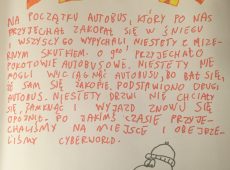 NA POCZĄTKU AUTOBUS, KTÓRY PO NAS
PRZYJECHAŁ ZAKOPAŁ SIĘ W ŚNIEGU
I WSZYSCY GO WYPYCHALI, NIESTETY Z MIZER-
NYM SKUTKIEM. O PRZYJECHAŁO
POGOTOWIE AUTOBUSOWE. NIESTETY NIE
MOGLI WYCIĄGNĄĆ AUTOBUSU, BO BAŁ SIĘ,
ŻE SAM SIĘ ZAKOPIE. PODSTAWIONO DRUGI
AUTOBUS. NIESTETY DRZWI NIE CHCIAŁY
SIĘ ZAMKNĄĆ I WYJAZD ZNOWU SIĘ
OPÓŹNIŁ. PO JAKIMŚ CZASIE PRZYJE-
CHALIŚMY NA MIEJSCE I OBEJRZE-
LIŚMY CYBERWORLD.